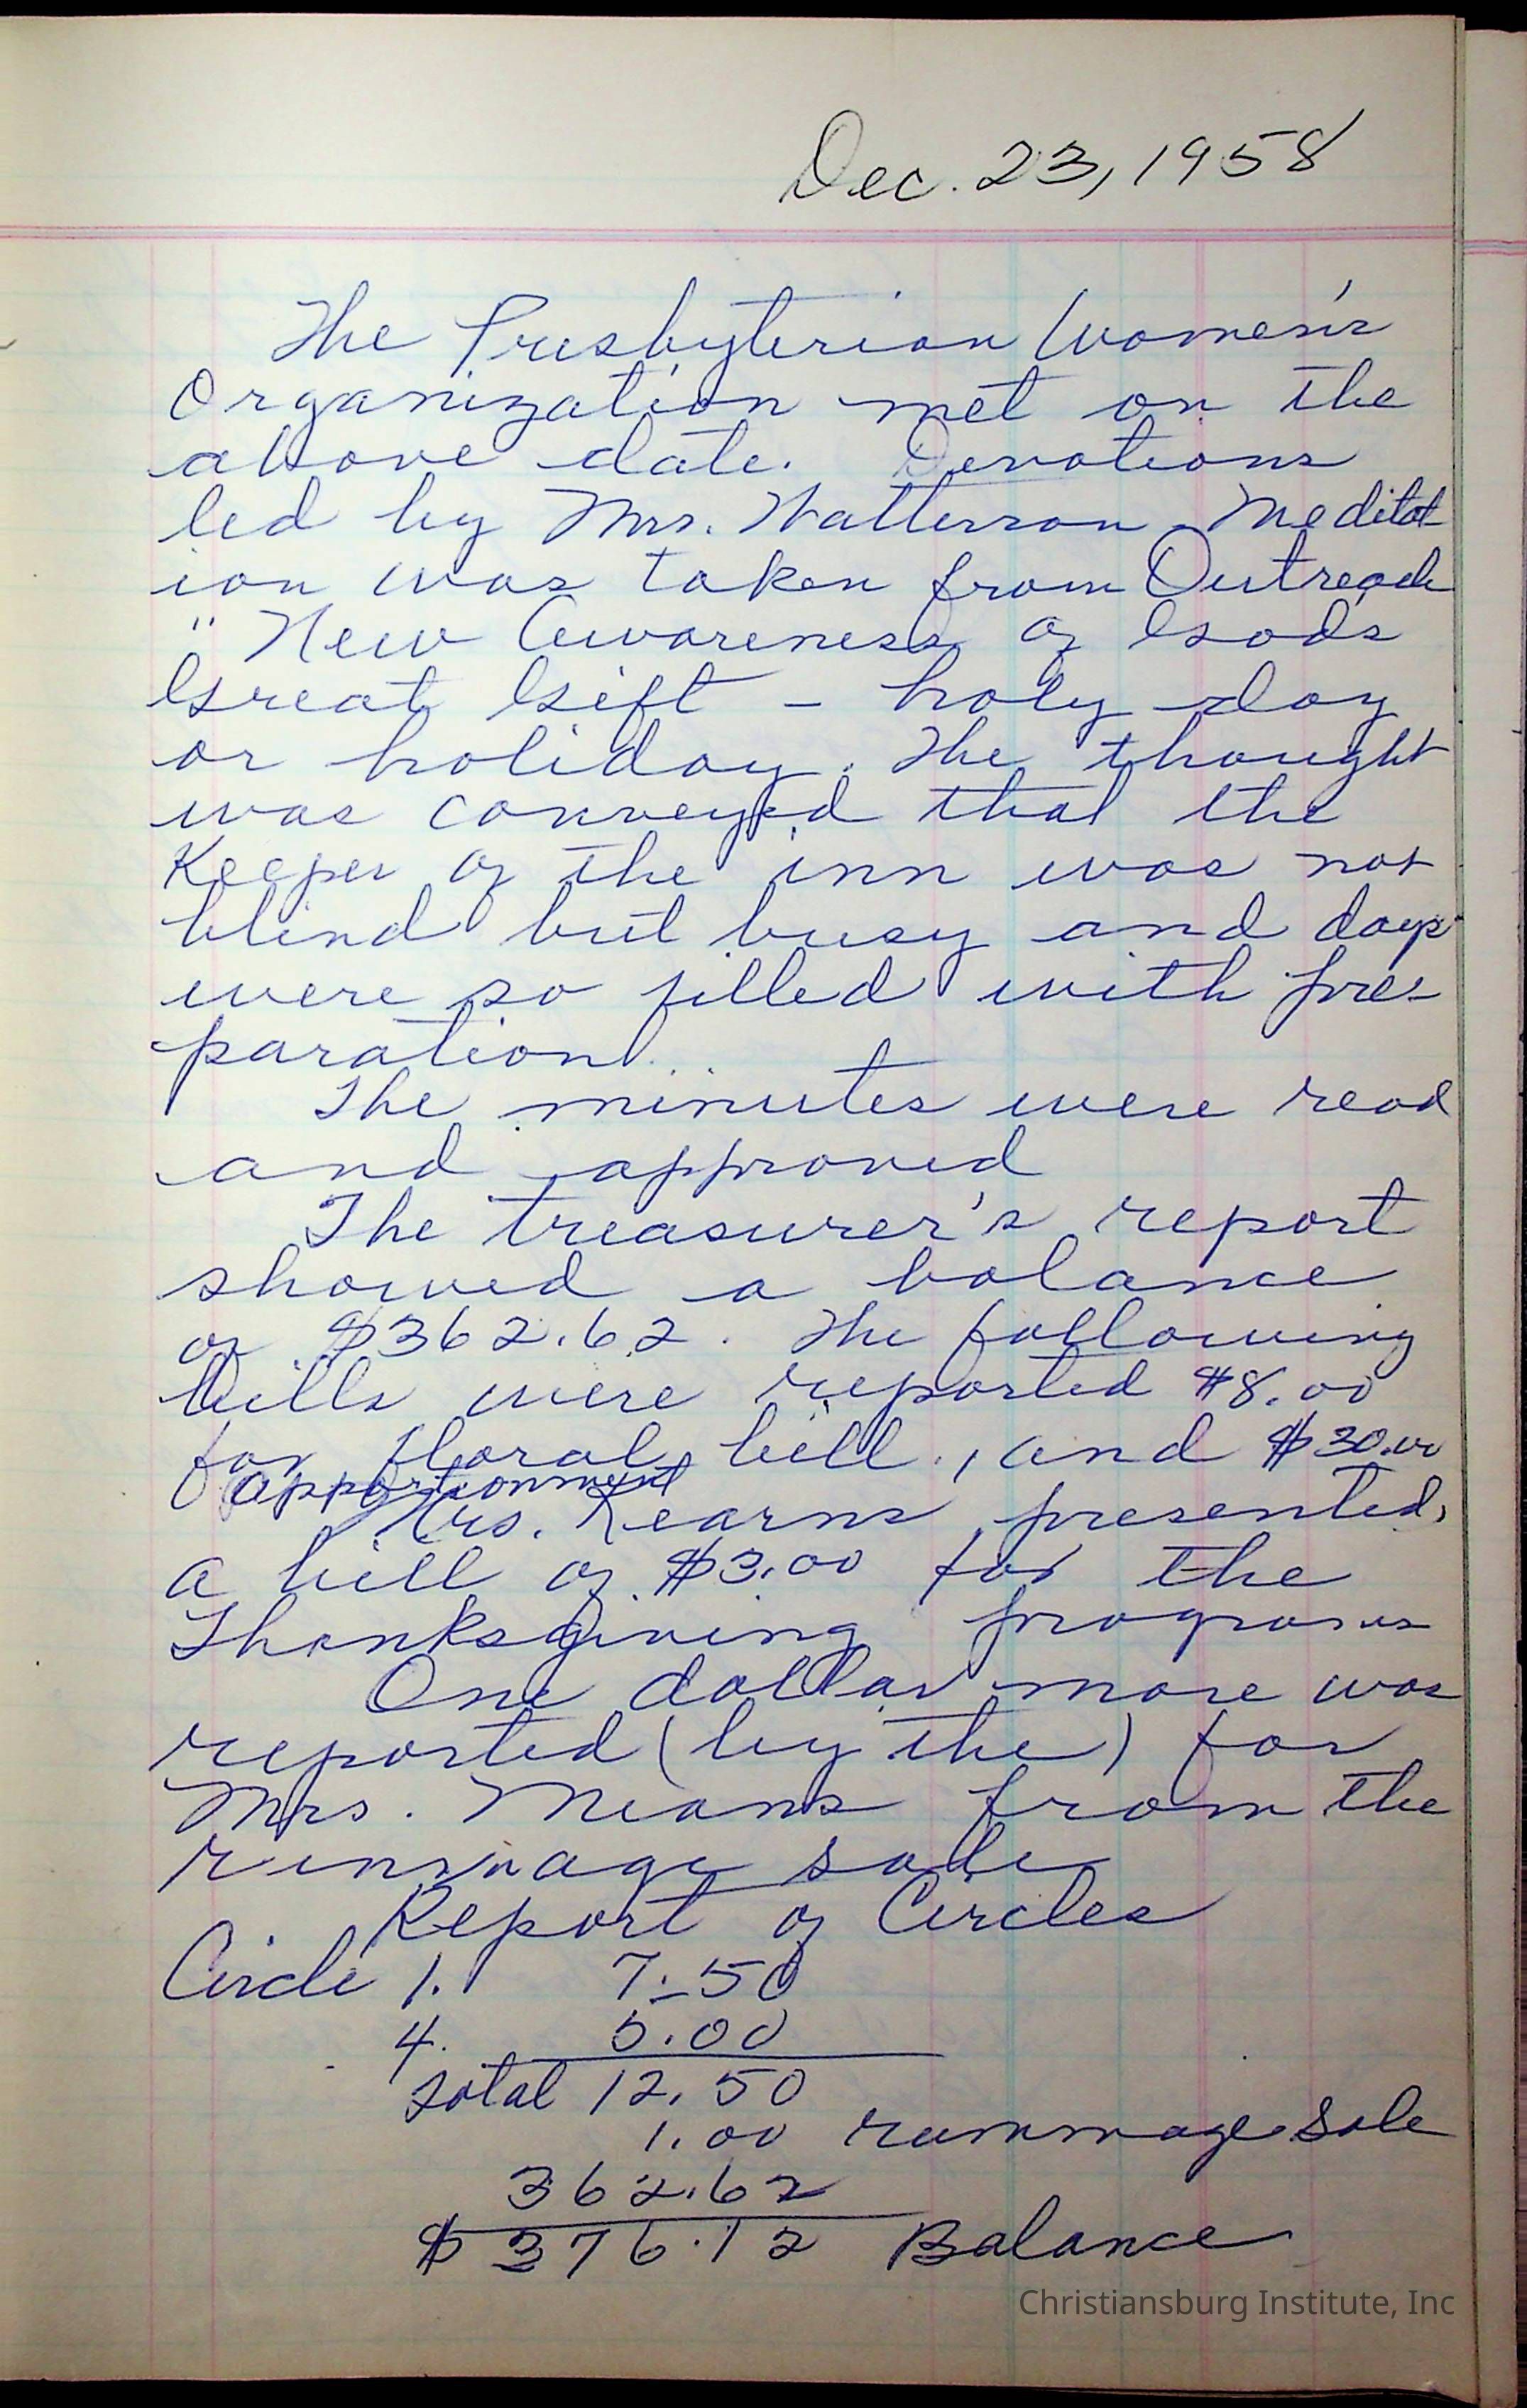 Dec. 23, 1958
The Presbyterian Women's
Organization met on the
above date. Devotions
led by Mrs. Watterson. Meditat
ion was taken from Outreach
" New Awareness of God's
Great Gift - holy day
or holiday. The thought
was conveyed that the
Keeper of the inn was not
blind but busy and days
were so filled with pre-
paration...
The minutes were read
and approved
The treasurer's report
showed a balance
of $362.62. The following
bills were reported $8.00
for floral bill, and $30.00
apportionment
Mrs. Kearns presented
a bill of $3.00 for the
Thanksgiving programs
One dollar more was
reported (by the) for
Mrs. Means from the
rummage sale
Report of Circles
Circle 1. 7.50
4. 5.00
Total 12.50
1.00 rummage sale
362.62
$ 376.12 Balance
Christiansburg Institute, Inc